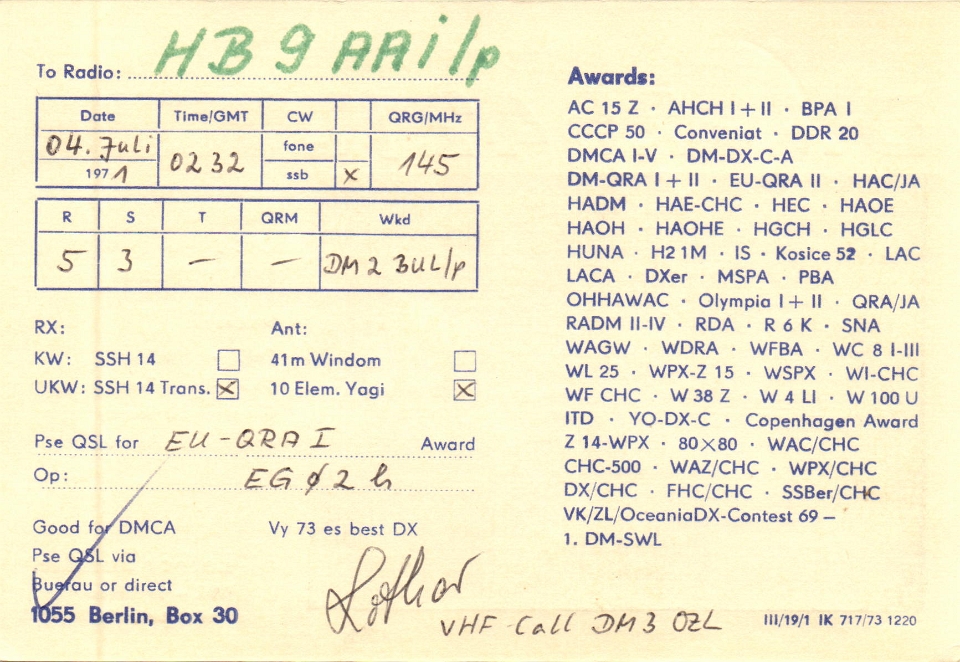 To Radio: HB9AAi/p
Date Time/GMT CW QRG/MHz
04. Juli 1971 0232 fone ssb x 145
R S T QRM Wkd
5 3 — — DM2BUL/p
RX: Ant:
KW: SSH 14 41m Windom
UKW: SSH 14 Trans. x 10 Elem. Yagi x
Pse QSL for EU-QRA I Award
Op: EGØ2h
Good for DMCA Vy 73 es best DX
Pse QSL via
Buerau or direct
1055 Berlin, Box 30
Lothar
VHF-Call DM3OZL
Awards:
AC 15 Z · AHCH I + II · BPA I
CCCP 50 · Conveniat · DDR 20
DMCA I-V · DM-DX-C-A
DM-QRA I + II · EU-QRA II · HAC/JA
HADM · HAE-CHC · HEC · HAOE
HAOH · HAOHE · HGCH · HGLC
HUNA · H2 1M · IS · Kosice 52 · LAC
LACA · DXer · MSPA · PBA
OHHAWAC · Olympia I + II · QRA/JA
RADM II-IV · RDA · R 6 K · SNA
WAGW · WDRA · WFBA · WC 8 I-III
WL 25 · WPX-Z 15 · WSPX · WI-CHC
WF CHC · W 38 Z · W 4 LI · W 100 U
ITD · YO-DX-C · Copenhagen Award
Z 14-WPX · 80×80 · WAC/CHC
CHC-500 · WAZ/CHC · WPX/CHC
DX/CHC · FHC/CHC · SSBer/CHC
VK/ZL/OceaniaDX-Contest 69 —
1. DM-SWL
III/19/1 IK 717/73 1220